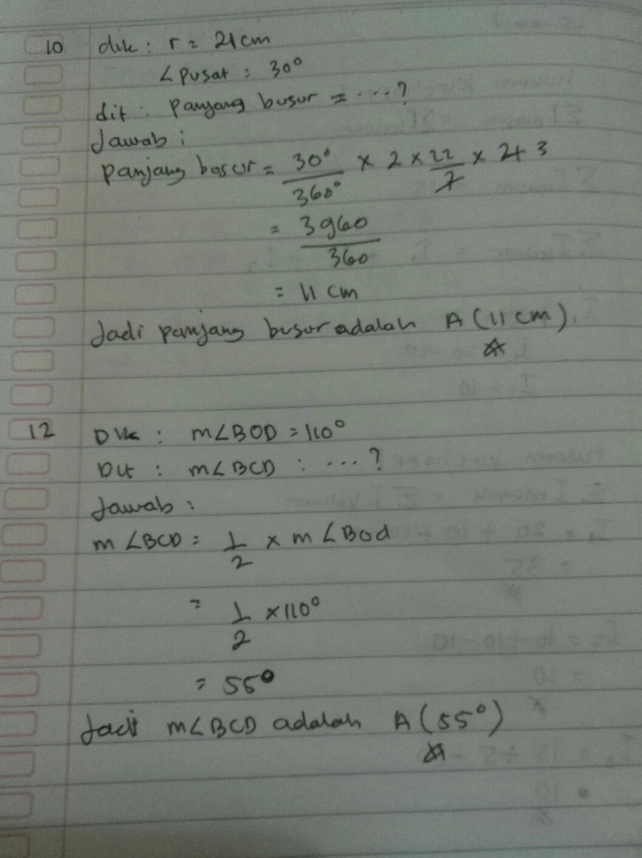 10 dik : r = 21 cm
∠pusat : 30°
dit : panjang busur = ...?
Jawab :
panjang busur = 30°/360° × 2 × 22/7 × 21 3
= 3960/360
= 11 cm
Jadi panjang busur adalah A (11 cm)
12 Dik : m∠BOD = 110°
Dit : m∠BCD : ...?
Jawab :
m ∠BCD = 1/2 × m ∠Bod
= 1/2 × 110°
= 55°
Jadi m∠BCD adalah A (55°)